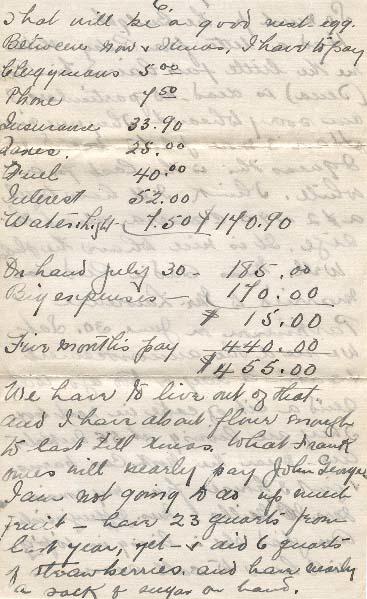 6
That will be a good nest egg.
Between now & Xmas, I have to pay
Clergymans 5.00
Phone 7.50
Insurance 33.90
Taxes. 25.00
Fuel 40.00
Interest 52.00
Water & Light - 7.50 $ 170.90
On hand July 30 - 185.00
Big expenses - 170.00
$ 15.00
Five months pay 440.00
$ 455.00
We have to live out of that
and I have about flour enough
to last till Xmas. What Frank
owes will nearly pay John George
I am not going to do up much
fruit - have 23 quarts from
last year, yet - & did 6 quarts
of strawberries. and have nearly
a sack of sugar on hand.